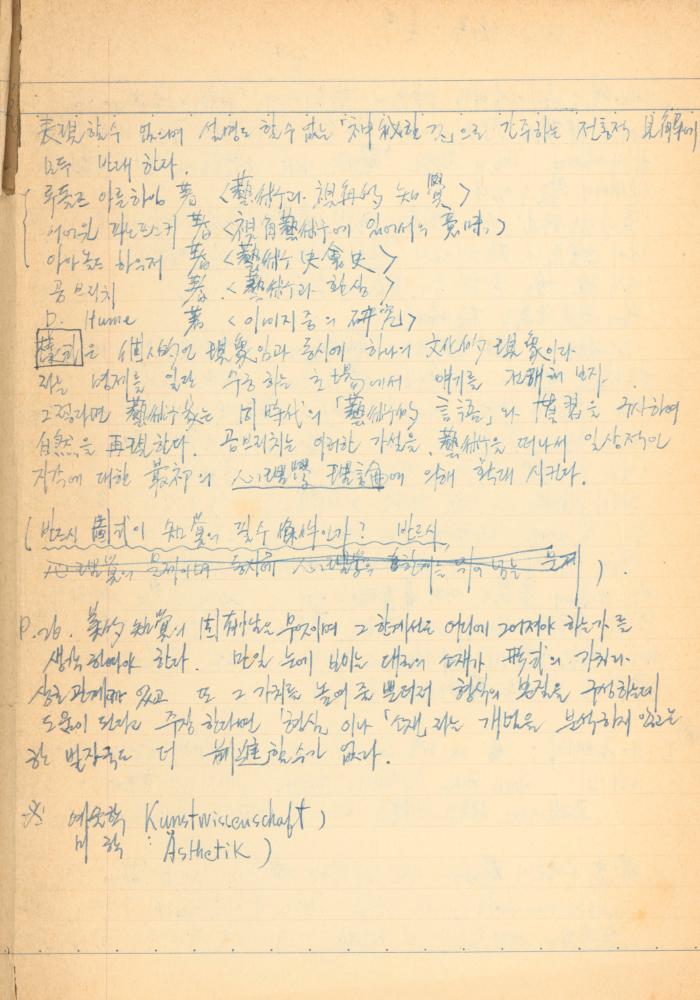 表現할수 없으며 설명도 할수 없는 「神秘한 것」으로 간주하는 전통적 見解에
모두 반대 한다.
루돌프 아른하임 著 <藝術과 視覺的 知覺>
어어윈 파노프스키 著 <視角藝術에 있어서의 意味>
아아놀드 하우저 著 <藝術史會史>
곰브리치 著 <藝術과 환상>
D. Hume 著 <이미지중의 研究>
様式은 個人的인 現象임과 동시에 하나의 文化的 現象이라
는 명제를 일단 수호하는 立場에서 얘기를 전개해 보자.
그렇다면 藝術家는 同時代의 「藝術的 言語」와 慣習을 구사하여
自然을 再現한다. 곰브리치는 이러한 가설을, 藝術을 떠나서 일상적인
지각에 대한 最初의 心理學 理論에 의해 확대 시킨다.
(반드시 圖式이 知覺의 필수 條件인가? 반드시
心理學의 문제이며 동시에 心理學의 한계를 뛰어 넘는 문제).
P.26. 美的 知覺의 固有性은 무엇이며 그 한계선은 어디에 그어져야 하는가를
생각 하여야 한다. 만일 눈에 보이는 대로의 소재가 形式의 가치와
상호관계가 있고 또 그 가치를 높여 줄 뿐더러 형식의 본질을 구성하는데
도움이 된다고 주장 한다면 「현실」이나 「소재」라는 개념을 분석하지 않고는
한 발자국도 더 前進할수가 없다.
※ 예술학 Kunstwissenschaft)
미학 : Ästhetik)